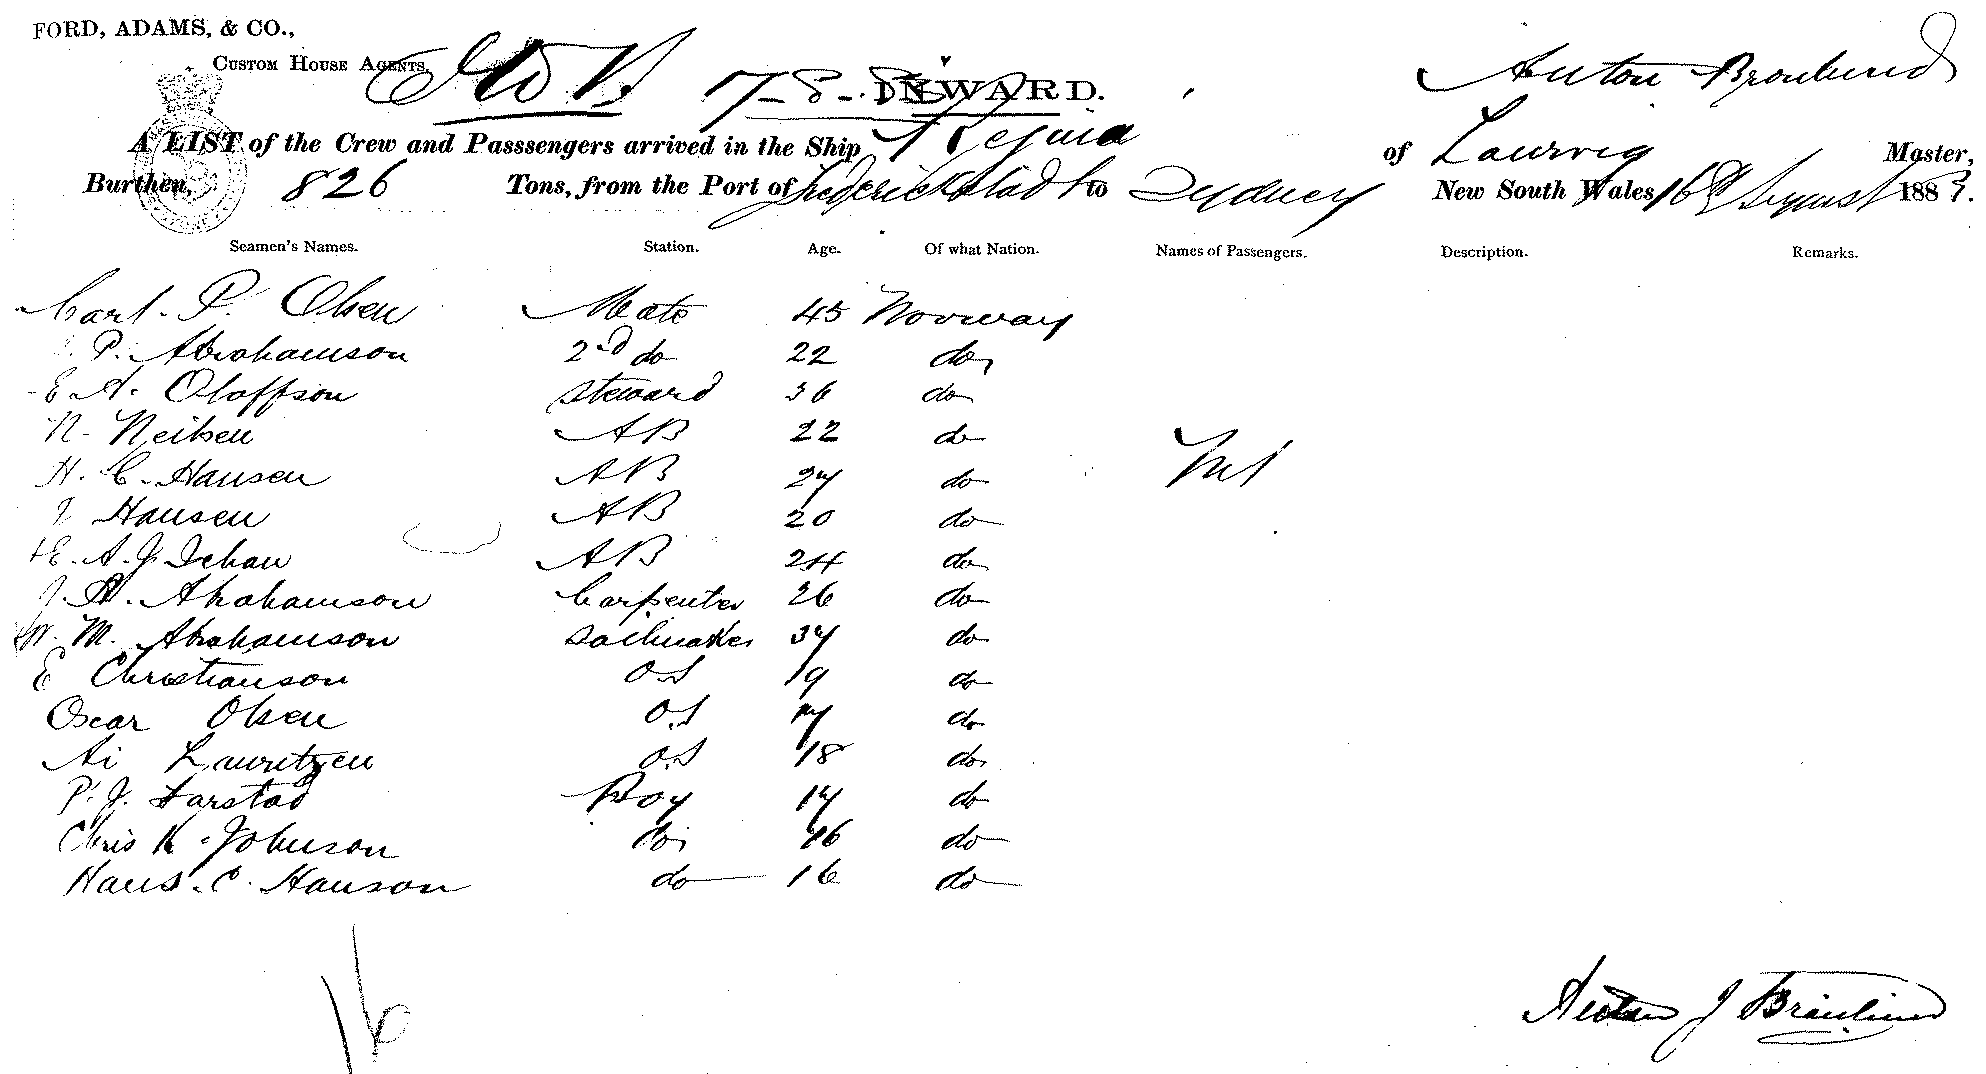 FORD, ADAMS, & CO.,
CUSTOM HOUSE AGENTS.
INWARD.
17-8-83
Anton
A LIST of the Crew and Passsengers arrived in the Ship Regina of Laurvig Master,
Burthen, 826 Tons, from the Port of Frederickstad to Sydney New South Wales, 16th August 1883.
Seamen's Names. Station. Age. Of what Nation. Names of Passengers. Description. Remarks.
Carl. P. Olsen Mate 45 Norway
P. Abrahamson 2nd do 22 do
E A. Olaffson Steward 36 do
N. Neilsen AB 22 do
Nil
H. C. Hansen AB 27 do
J Hansen AB 20 do
E. A. J. AB 24 do
J. A. Abrahamson Carpenter 26 do
M. Abrahamson Sailmaker 37 do
E Christianson OS 19 do
Oscar Olsen O.S 17 do
Ai Lauritzen O.S 18 do
P. J. Farstad Boy 17 do
Chris K. Johnson do 16 do
Hans. C. Hanson do 16 do
16
Anton J